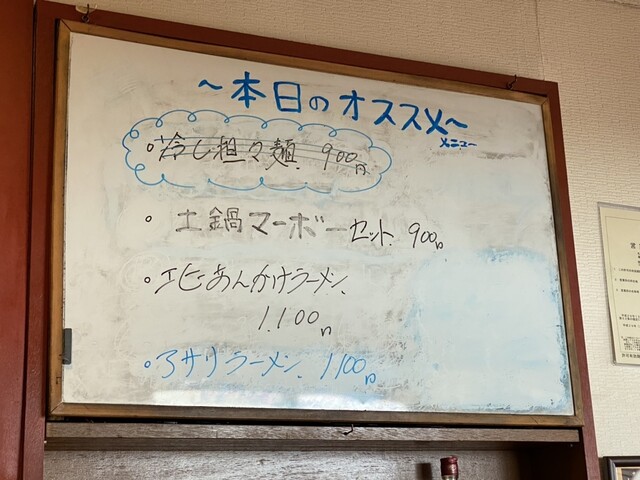 〜本日のオススメ〜
メニュー
・冷し担々麺 900円
・土鍋マーボーセット 900円
・エビあんかけラーメン
1.100円
・アサリラーメン 1100円